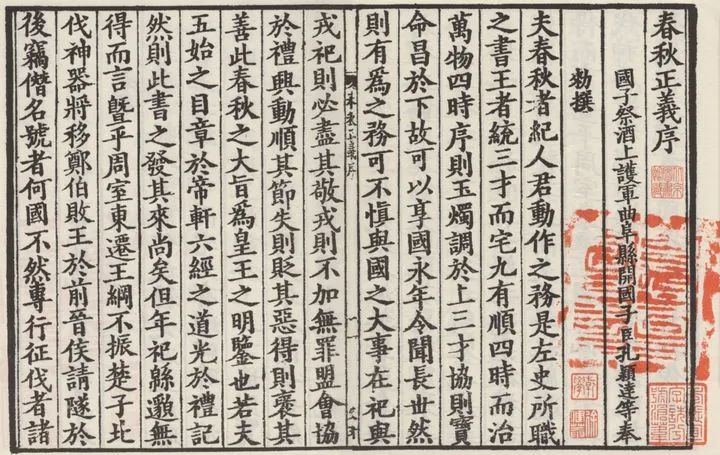 春秋正義序
國子祭酒上護軍曲阜縣開國子臣孔穎達等奉
勑撰
夫春秋者紀人君動作之務是左史所職
之書王者統三才而宅九有順四時而治
萬物四時序則玉燭調於上三才協則寶
命昌於下故可以享國永年令聞長世然
則有爲之務可不慎與國之大事在祀與
戎祀則必盡其敬戎則不加無罪盟會協
於禮興動順其節失則貶其惡得則褒其
善此春秋之大旨爲皇王之明鑒也若夫
五始之目章於帝軒六經之道光於禮記
然則此書之發其來尚矣但年祀緜邈無
得而言曁乎周室東遷王綱不振楚子北
伐神器將移鄭伯敗王於前晉侯請隧於
後竊僭名號者何國不然專行征伐者諸